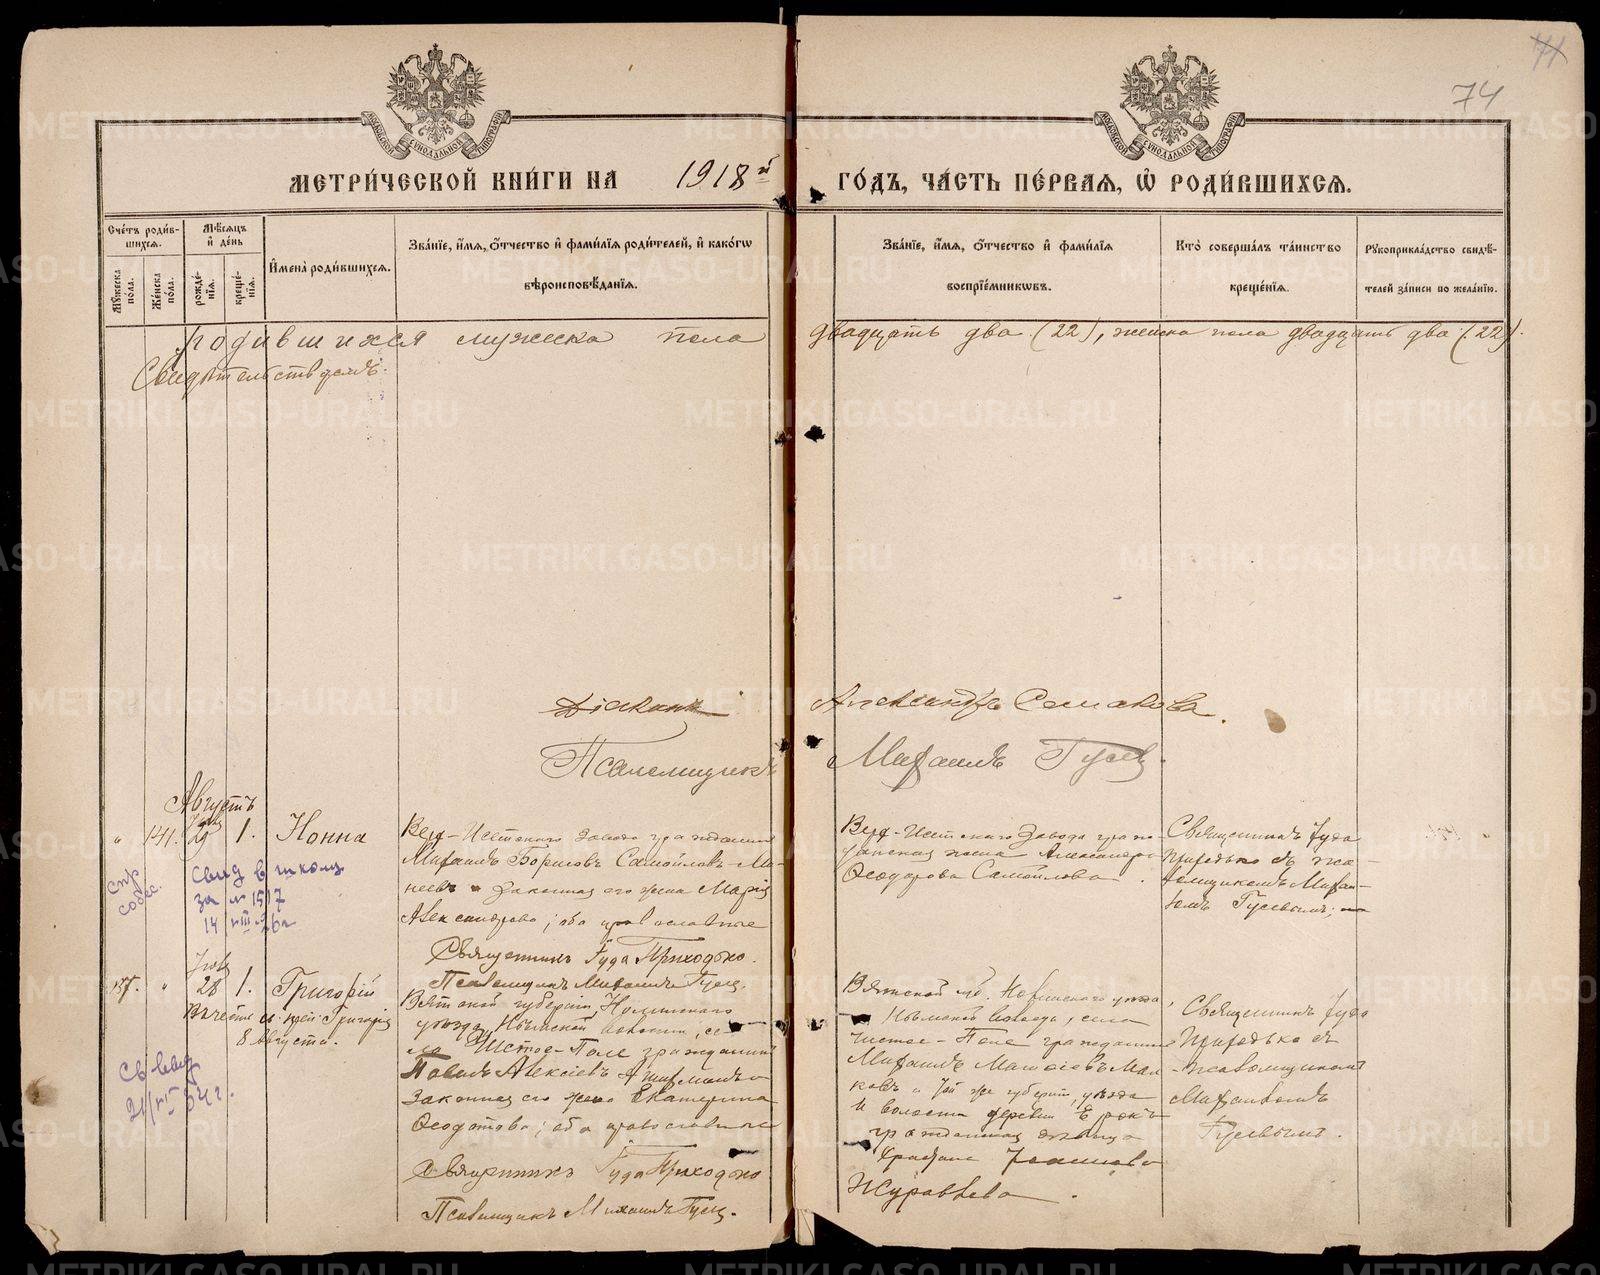 74
МЕТРИ́ЧЕСКОЙ КНИ́ГИ НА 1918й ГО́ДЪ, ЧА́СТЬ ПЕ́РВАЯ, Ѡ РОДИ́ВШИХСЯ.
Сче́тъ роди́в-
шихся.
Мꙋ́жеска по́ла.
Же́нска по́ла.
Мѣ́сяцъ
и҆ де́нь
рожде́-
нїя.
креще́-
нїя.
И҆мена̀ роди́вшихся.
Зва́нїе, и҆́мя, ѻ҆́тчество и҆ фами́лїя роди́телей, и҆ како́гѡ
вѣроисповѣ́данїя.
Зва́нїе, и҆́мя, ѻ҆́тчество и҆ фами́лїя
воспрїе́мникѡвъ.
Кто̀ соверша́лъ та́инство
креще́нїя.
Рꙋкоприкла́дство свидѣ́-
телей за́писи по жела́нїю.
родившихся мужеска пола двадцать два (22), женска пола двадцать два (22).
Свидѣтельствуемъ:
Діаконъ Александръ Семакова.
Псаломщикъ Михаилъ Гусев.
Августъ
141. 29 1. Нонна
Верх-Исетскаго завода гражданинъ
Михаилъ Борисовъ Самойловъ-Ми-
неевъ законная его жена Марія
Александрова; оба православные
Священникъ Гуда Приходько.
Псаломщикъ Михаилъ Гусев.
Верх-Исетскаго завода граж-
данская жена Александра
Ѳеодорова Самойлова.
Священникъ Гуда
Приходько съ пса-
ломщикомъ Михаи-
ломъ Гусевымъ
спр
собес.
свид в школу
за № 1517
14 VIII 26г
137. " 28 1. Григорій
8 Августа.
Вятской губерніи, Нолинскаго
уѣзда, Ильинской волости, се-
ла Чистое-Поле гражданинъ
Павелъ Алексіевъ
законная его жена Екатерина
Ѳеодотова; оба православные
Священникъ Гуда Приходько.
Псаломщикъ Михаилъ Гусев.
Вятской губ. Нолинскаго уѣзда,
Ильинской волости, села
Чистое-Поле гражданинъ
Михаилъ
той же губерніи, уѣзда
и волости деревни
гражданская
Журавлева.
Священникъ Гуда
Приходько съ
псаломщикомъ
Михаиломъ
Гусевымъ.
METRIKI.GASO-URAL.RU